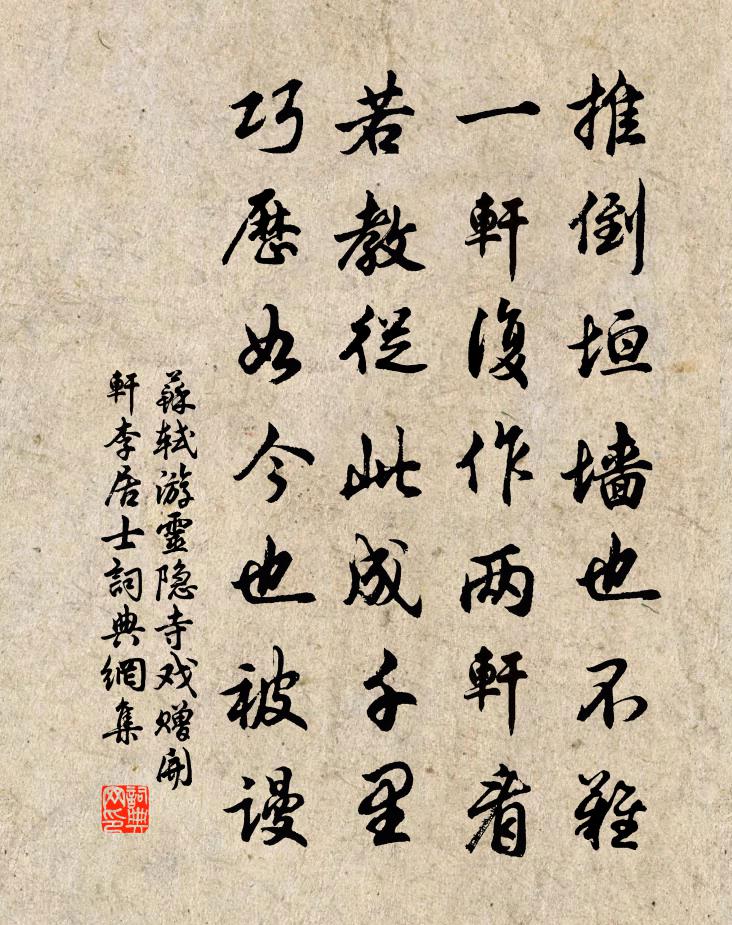 推倒垣墙也不難
一軒復作两軒看
若教從此成千里
巧歷如今也被谩
蘇轼游靈隐寺戏赠開
軒李居士詞典網集
詞典网印